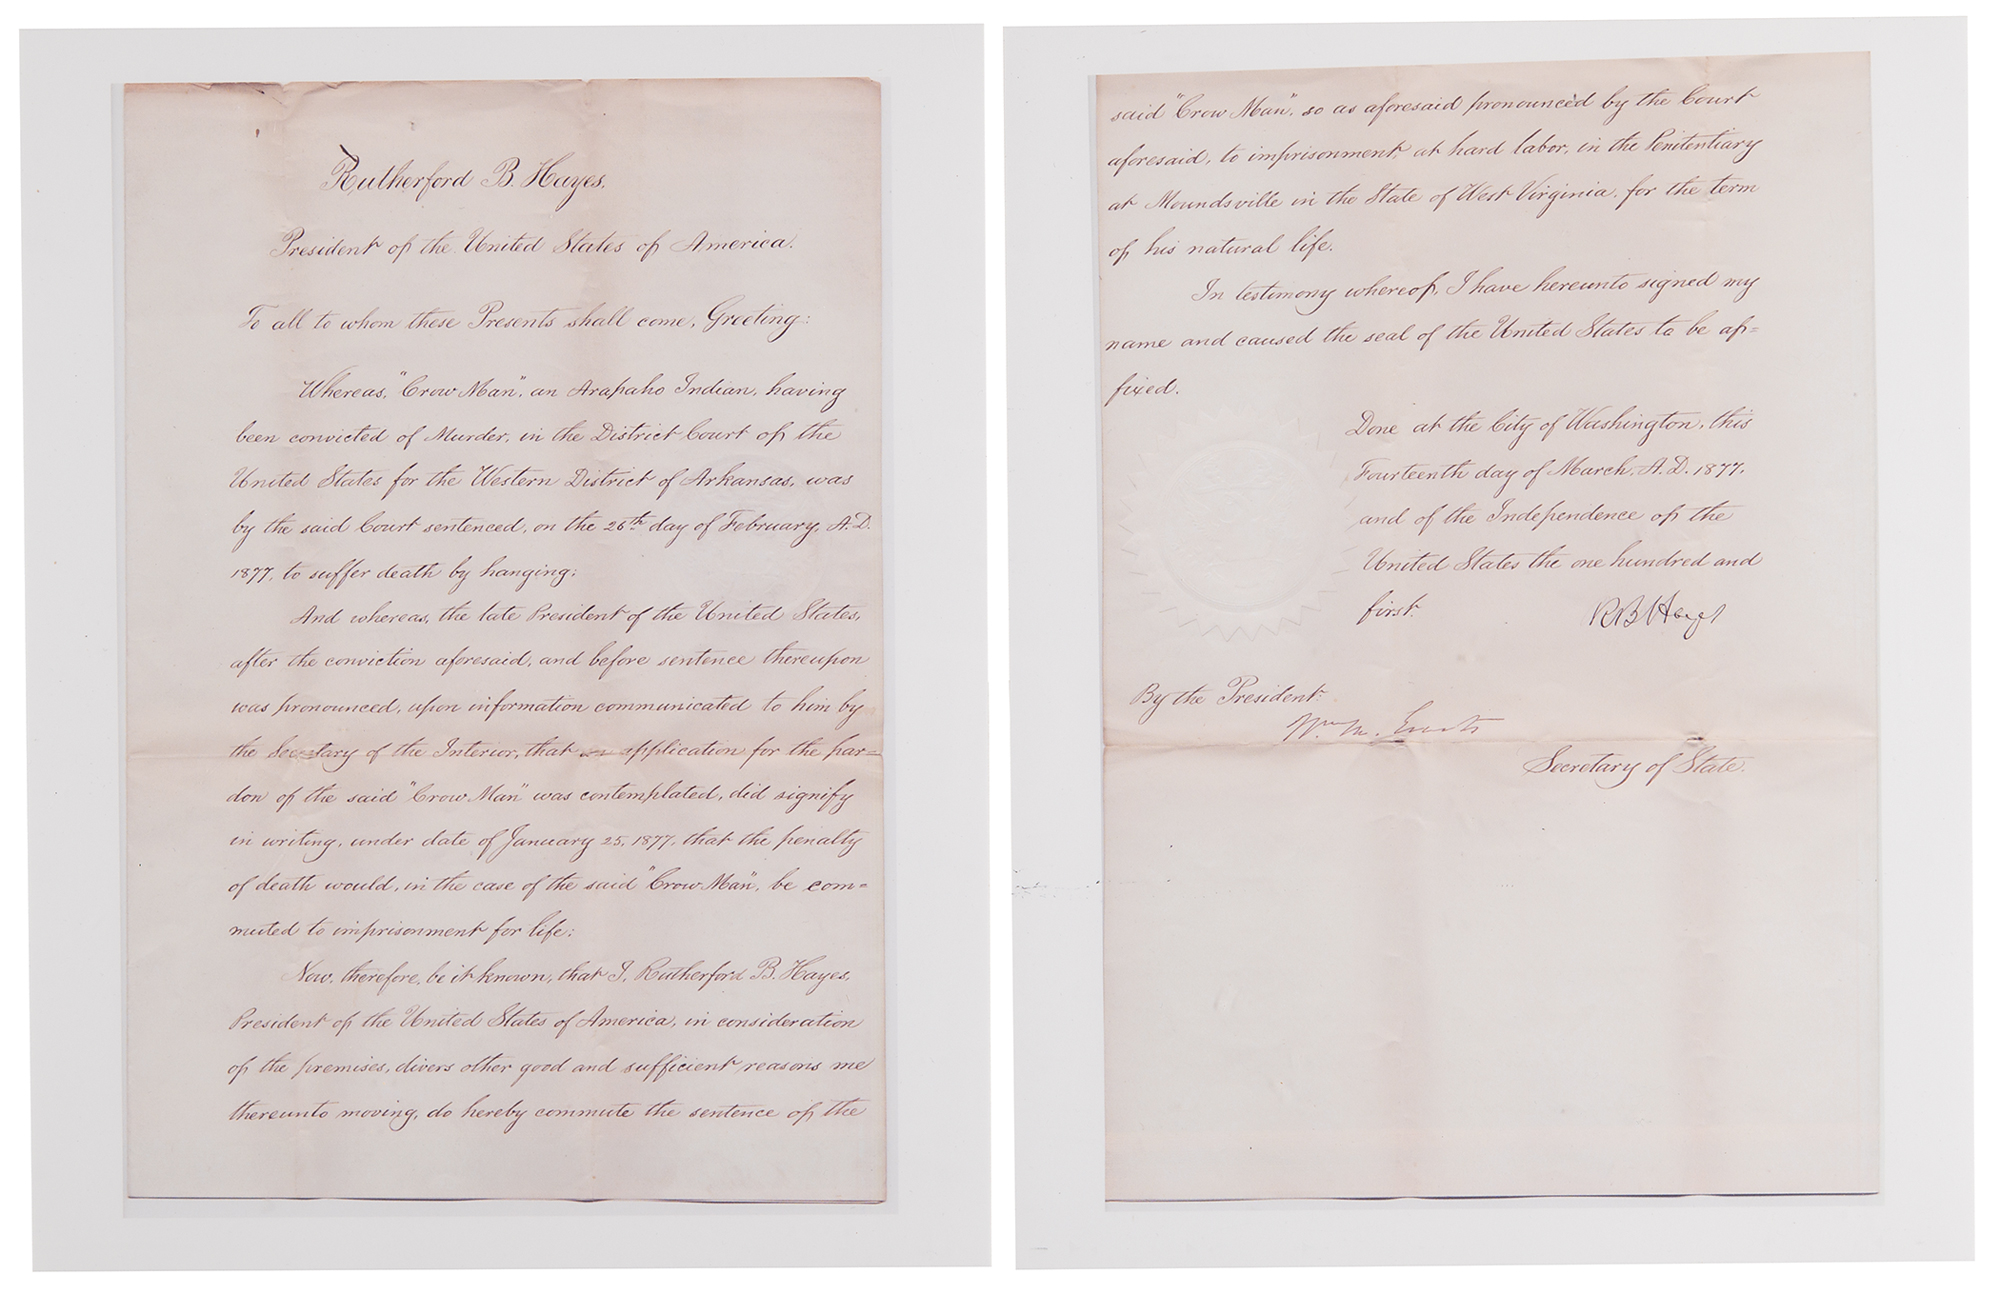 Rutherford B. Hayes,
President of the United States of America.
To all to whom these Presents shall come, Greeting:
Whereas, "Crow Man", an Arapaho Indian, having
been convicted of Murder, in the District Court of the
United States for the Western District of Arkansas, was
by the said Court sentenced, on the 26th day of February, A.D.
1877, to suffer death by hanging:
And whereas, the late President of the United States,
after the conviction aforesaid, and before sentence thereupon
was pronounced, upon information communicated to him by
the Secretary of the Interior, that an application for the par=
don of the said "Crow Man" was contemplated, did signify
in writing, under date of January 25, 1877, that the penalty
of death would, in the case of the said "Crow Man", be com=
muted to imprisonment for life:
Now, therefore, be it known, that I, Rutherford B. Hayes,
President of the United States of America, in consideration
of the premises, divers other good and sufficient reasons me
thereunto moving, do hereby commute the sentence of the
said "Crow Man", so as aforesaid pronounced by the Court
aforesaid, to imprisonment, at hard labor, in the Penitentiary
at Moundsville in the State of West Virginia, for the term
of his natural life.
In testimony whereof, I have hereunto signed my
name and caused the seal of the United States to be af=
fixed.
Done at the City of Washington, this
Fourteenth day of March, A.D. 1877,
and of the Independence of the
United States the one hundred and
first.
R B Hayes
By the President:
Wm. M. Evarts
Secretary of State.